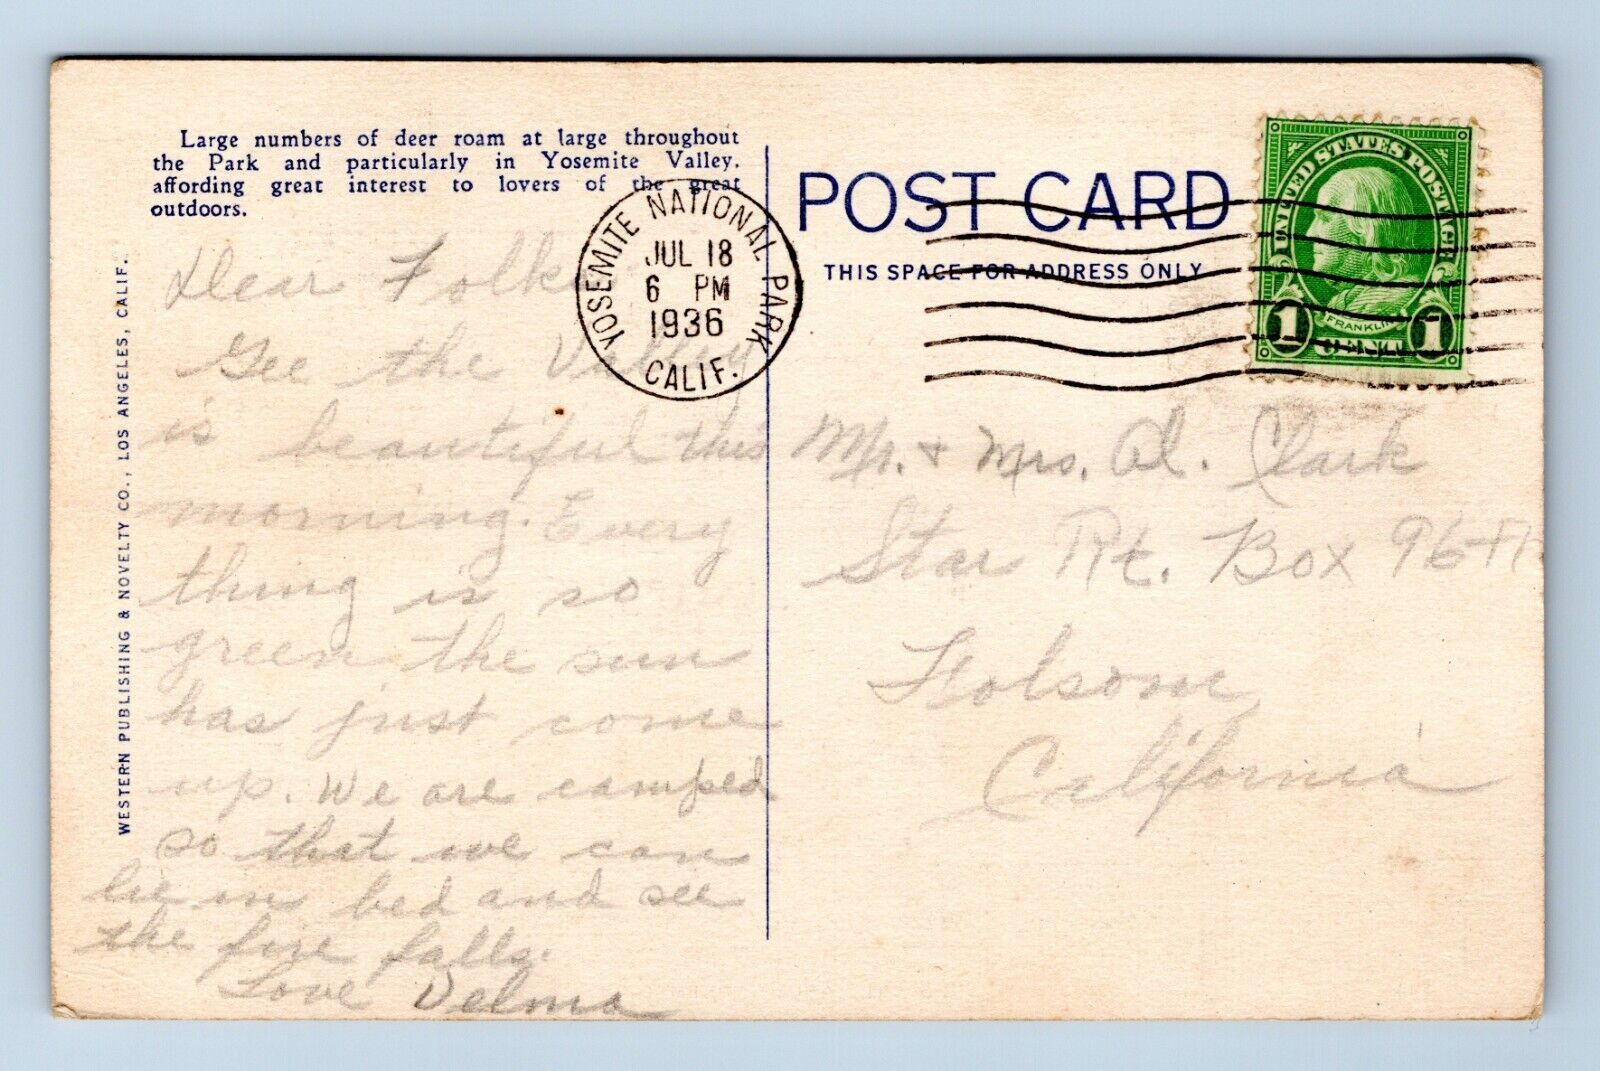 Large numbers of deer roam at large throughout
the Park and particularly in Yosemite Valley,
affording great interest to lovers of the great
outdoors.
WESTERN PUBLISHING & NOVELTY CO., LOS ANGELES, CALIF.
Dear Folks
Gee the Valley
is beautiful this
morning. Every
thing is so
green the sun
has just come
up. We are camped
so that we can
lie in bed and see
the fire falls.
Love Velma
YOSEMITE NATIONAL PARK
JUL 18
6 PM
1936
CALIF.
POST CARD
THIS SPACE FOR ADDRESS ONLY
UNITED STATES POSTAGE
FRANKLIN
1 CENT 1
Mr. + Mrs. Al. Clark
Star Rt. Box 96
Folsom
California